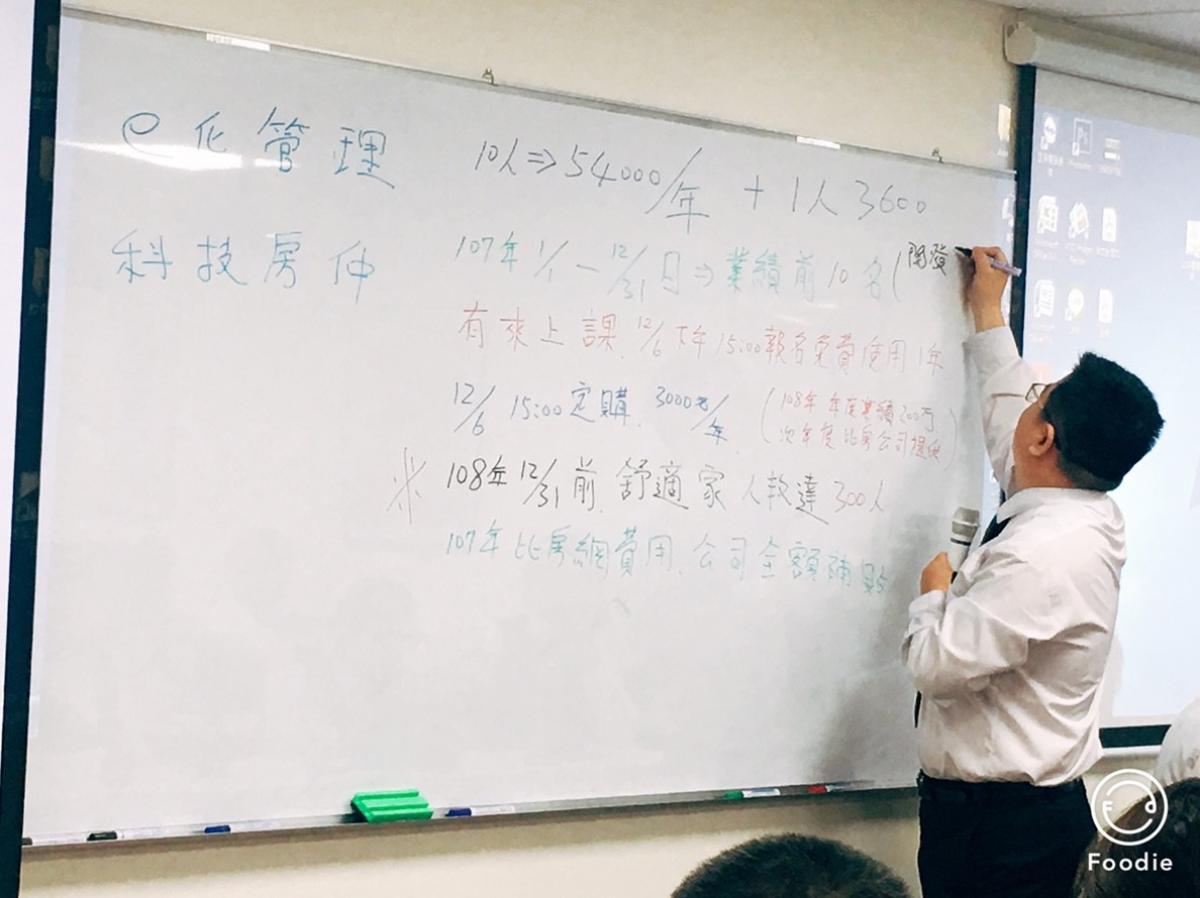 e化管理
10人⇒54000/年 + 1人3600
科技房仲
107年 1/1 — 12/31日⇒業績前10名(開發
有來上課、12/6下午15:00報名免費使用1年
12/6 15:00定購、3000元/年
(108年 年度業績200万
次年度比房公司提供)
※ 108年12/31前、舒適家人數達300人
107年比房網費用、公司全額補貼
Ps
Foodie